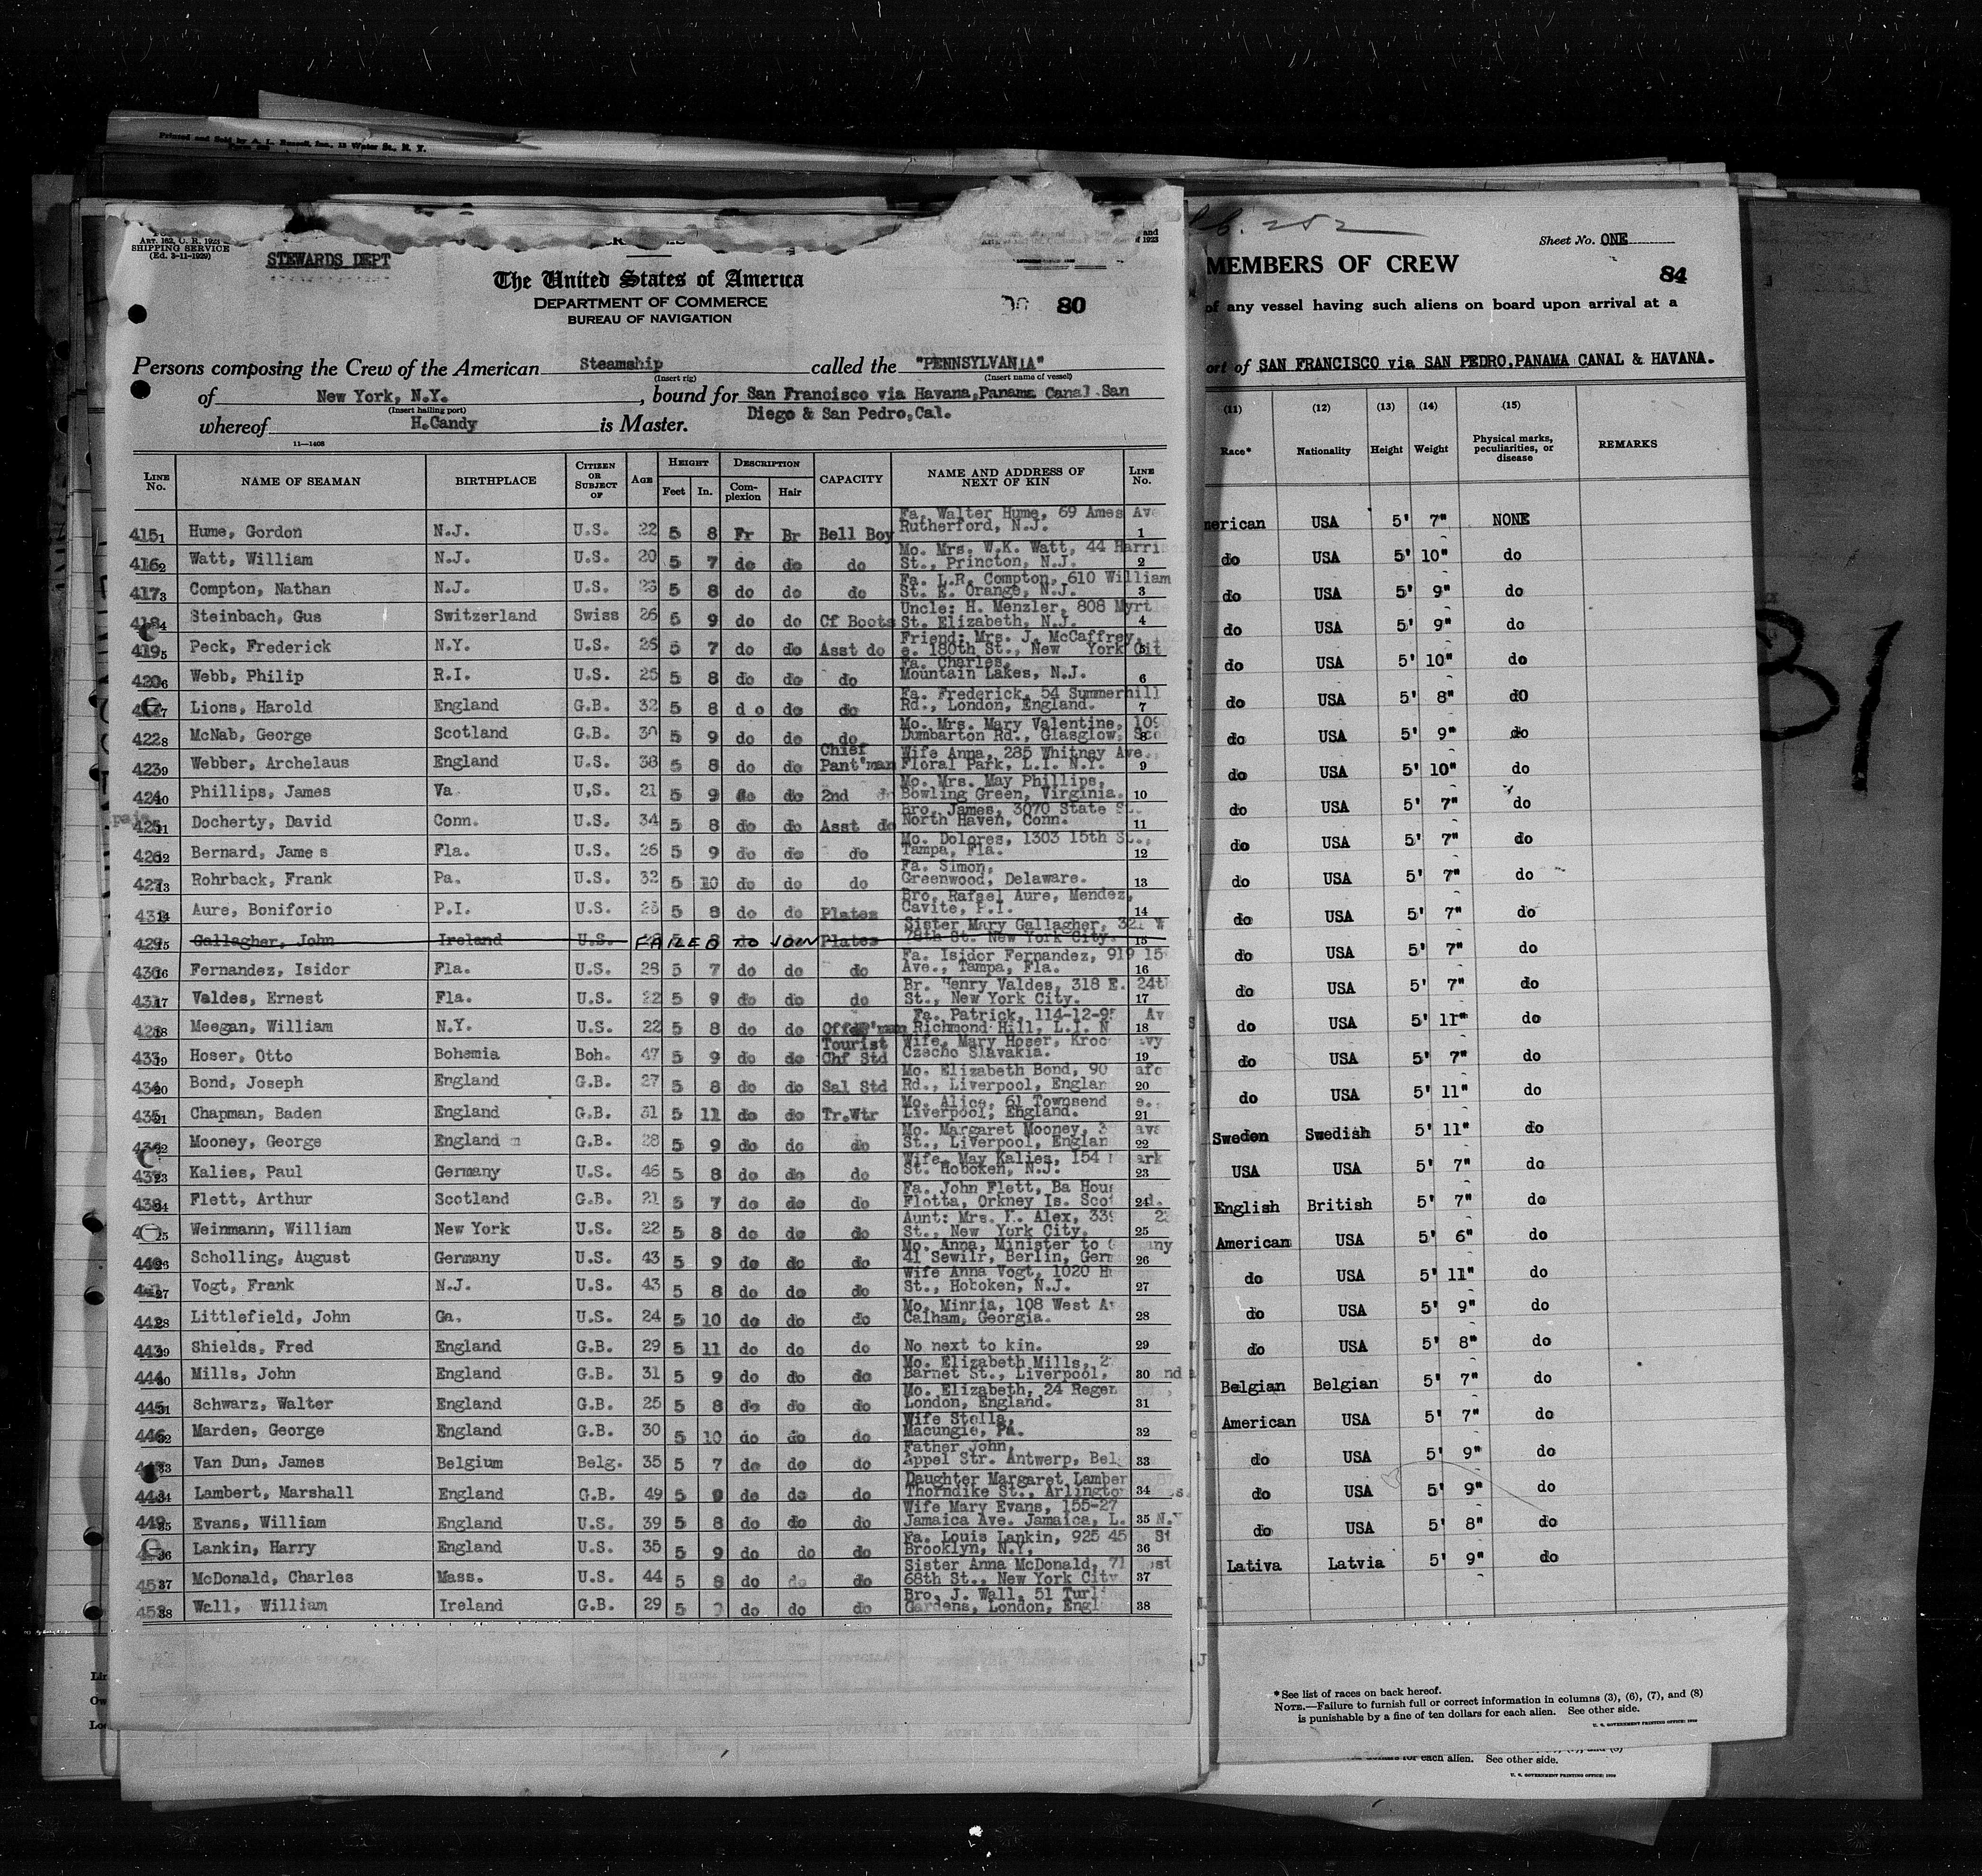 Printed and Sold by A. L. Russell, Inc., 12 Water St., N. Y.
ART. 162, C. R. 1923
SHIPPING SERVICE
(Ed. 3-11-1929)
STEWARDS DEPT
The United States of America
DEPARTMENT OF COMMERCE
BUREAU OF NAVIGATION
80
Persons composing the Crew of the American Steamship called the "PENNSYLVANIA"
(Insert rig) (Insert name of vessel)
of New York, N.Y. , bound for San Francisco via Havana,Panama Canal San
(Insert hailing port) Diego & San Pedro,Cal.
whereof H.Candy is Master.
11—1408
LINE No. NAME OF SEAMAN BIRTHPLACE CITIZEN OR SUBJECT OF AGE HEIGHT Feet In. DESCRIPTION Complexion Hair CAPACITY NAME AND ADDRESS OF NEXT OF KIN LINE No.
415 1 Hume, Gordon N.J. U.S. 22 5 8 Fr Br Bell Boy Fa. Walter Hume, 69 Ames Ave Rutherford, N.J. 1
416 2 Watt, William N.J. U.S. 20 5 7 do do do Mo. Mrs. W.K. Watt, 44 Harris St., Princton, N.J. 2
417 3 Compton, Nathan N.J. U.S. 5 8 do do do Fa. L.R. Compton, 610 William St. E. Orange, N.J. 3
418 4 Steinbach, Gus Switzerland Swiss 26 5 9 do do Cf Boots Uncle: H. Menzler, 808 Myrtle St. Elizabeth, N.J. 4
419 5 Peck, Frederick N.Y. U.S. 26 5 7 do do Asst do Friend: Mrs. J. McCaffrey, e. 180th St., New York Cit 5
420 6 Webb, Philip R.I. U.S. 25 5 8 do do do Fa. Charles, Mountain Lakes, N.J. 6
7 Lions, Harold England G.B. 32 5 8 d o do do Fa. Frederick, 54 Summerhill Rd., London, England. 7
422 8 McNab, George Scotland G.B. 30 5 9 do do do Mo. Mrs. Mary Valentine, 109 Dumbarton Rd., Glasglow, Sco 8
423 9 Webber, Archelaus England U.S. 38 5 8 do do Chief Pant'man Wife Anna, 285 Whitney Ave., Floral Park, L.I. N.Y. 9
424 10 Phillips, James Va U.S. 21 5 9 do do 2nd do Mo. Mrs. May Phillips, Bowling Green, Virginia. 10
425 11 Docherty, David Conn. U.S. 34 5 8 do do Asst do Bro. James, 3070 State S North Haven, Conn. 11
426 12 Bernard, Jame s Fla. U.S. 26 5 9 do do do Mo. Dolores, 1303 15th St., Tampa, Fla. 12
427 13 Rohrback, Frank Pa. U.S. 32 5 10 do do do Fa. Simon, Greenwood, Delaware. 13
14 Aure, Boniforio P.I. U.S. 5 8 do do Plates Bro. Rafael Aure, Mendez, Cavite, P.I. 14
429 15 Gallagher, John Ireland U.S. FAILED TO JOIN Plates Sister Mary Gallagher, 321 W 78th St. New York City. 15
430 16 Fernandez, Isidor Fla. U.S. 28 5 7 do do do Fa. Isidor Fernandez, 919 15 Ave., Tampa, Fla. 16
431 17 Valdes, Ernest Fla. U.S. 22 5 9 do do do Br. Henry Valdes, 318 E. 24th St., New York City. 17
18 Meegan, William N.Y. U.S. 22 5 8 do do Fa. Patrick, 114-12-95 Av Richmond Hill, L.I. N 18
433 19 Hoser, Otto Bohemia Boh. 47 5 9 do do Tourist Chf Std Wife, Mary Hoser, Kroc Czecho Slavakia. 19
434 20 Bond, Joseph England G.B. 27 5 8 do do Sal Std Mo. Elizabeth Bond, 90 Rd., Liverpool, Englan 20
435 21 Chapman, Baden England G.B. 31 5 11 do do Tr.Wtr Mo. Alice, 61 Townsend Liverpool, England. 21
436 22 Mooney, George England G.B. 28 5 9 do do do Mo. Margaret Mooney, St., Liverpool, Englan 22
437 23 Kalies, Paul Germany U.S. 46 5 8 do do do Wife, May Kalies, 154 ark St. Hoboken, N.J. 23
438 24 Flett, Arthur Scotland G.B. 21 5 7 do do do Fa. John Flett, Ba Hous Flotta, Orkney Is. Scot d. 24
25 Weinmann, William New York U.S. 22 5 8 do do do Aunt: Mrs. Y. Alex, 339 St., New York City. 25
440 26 Scholling, August Germany U.S. 43 5 9 do do do Mo. Anna, Minister to Germany 41 Sewilr, Berlin, Germ 26
27 Vogt, Frank N.J. U.S. 43 5 8 do do do Wife Anna Vogt, 1020 H St., Hoboken, N.J. 27
442 28 Littlefield, John Ga. U.S. 24 5 10 do do do Mo. Minnia, 108 West Av Calham, Georgia. 28
443 29 Shields, Fred England G.B. 29 5 11 do do do No next to kin. 29
444 30 Mills, John England G.B. 31 5 9 do do do Mo. Elizabeth Mills, 2 Barnet St., Liverpool, nd 30
445 31 Schwarz, Walter England G.B. 25 5 8 do do do Mo. Elizabeth, 24 Regen London, England. 31
446 32 Marden, George England G.B. 30 5 10 do do do Wife Stella, Macungie, Pa. 32
33 Van Dun, James Belgium Belg. 35 5 7 do do do Father John, Appel Str. Antwerp, Belg 33
448 34 Lambert, Marshall England G.B. 49 5 9 do do do Daughter Margaret Lamber Thorndike St., Arlington 34
449 35 Evans, William England U.S. 39 5 8 do do do Wife Mary Evans, 155-27 Jamaica Ave. Jamaica, L. N.Y 35
36 Lankin, Harry England U.S. 35 5 9 do do do Fa. Louis Lankin, 925 45 St Brooklyn, N.Y. 36
451 37 McDonald, Charles Mass. U.S. 44 5 8 do do do Sister Anna McDonald, 71 West 68th St., New York City 37
452 38 Wall, William Ireland G.B. 29 5 do do do Bro. J. Wall, 51 Turl Gardens, London, Engl 38
Sheet No. ONE
MEMBERS OF CREW
84
of any vessel having such aliens on board upon arrival at a
ort of SAN FRANCISCO via SAN PEDRO,PANAMA CANAL & HAVANA.
(11) (12) (13) (14) (15)
Race* Nationality Height Weight Physical marks, peculiarities, or disease REMARKS
merican USA 5' 7" NONE
do USA 5' 10" do
do USA 5' 9" do
do USA 5' 9" do
do USA 5' 10" do
do USA 5' 8" dO
do USA 5' 9" do
do USA 5' 10" do
do USA 5' 7" do
do USA 5' 7" do
do USA 5' 7" do
do USA 5' 7" do
do USA 5' 7" do
do USA 5' 7" do
do USA 5' 11" do
do USA 5' 7" do
do USA 5' 11" do
Sweden Swedish 5' 11" do
USA USA 5' 7" do
English British 5' 7" do
American USA 5' 6" do
do USA 5' 11" do
do USA 5' 9" do
do USA 5' 8" do
Belgian Belgian 5' 7" do
American USA 5' 7" do
do USA 5' 9" do
do USA 5' 9" do
do USA 5' 8" do
Lativa Latvia 5' 9" do
*See list of races on back hereof.
NOTE.—Failure to furnish full or correct information in columns (3), (6), (7), and (8)
is punishable by a fine of ten dollars for each alien. See other side.
U. S. GOVERNMENT PRINTING OFFICE
for each alien. See other side.
U. S. GOVERNMENT PRINTING OFFICE